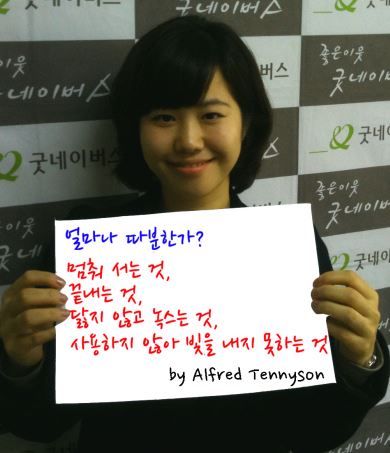 굿네이버스
좋은이웃
굿네이버스
좋은이웃
네이버스
굿네이버스
버스
좋은이웃
굿네이버스
얼마나 따분한가?
멈춰 서는 것,
끝내는 것,
닳지 않고 녹스는 것,
사용하지 않아 빛을 내지 못하는 것
by Alfred Tennyson